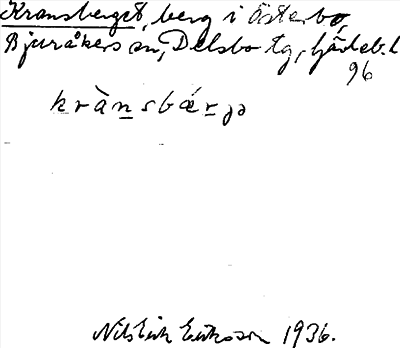 Kransberget, berg i Österbo,
Bjuråkers sn, Delsbo tg, Gävleb. l
96
kràn̲sbár̲jə
Nils Erik Eriksson 1936.